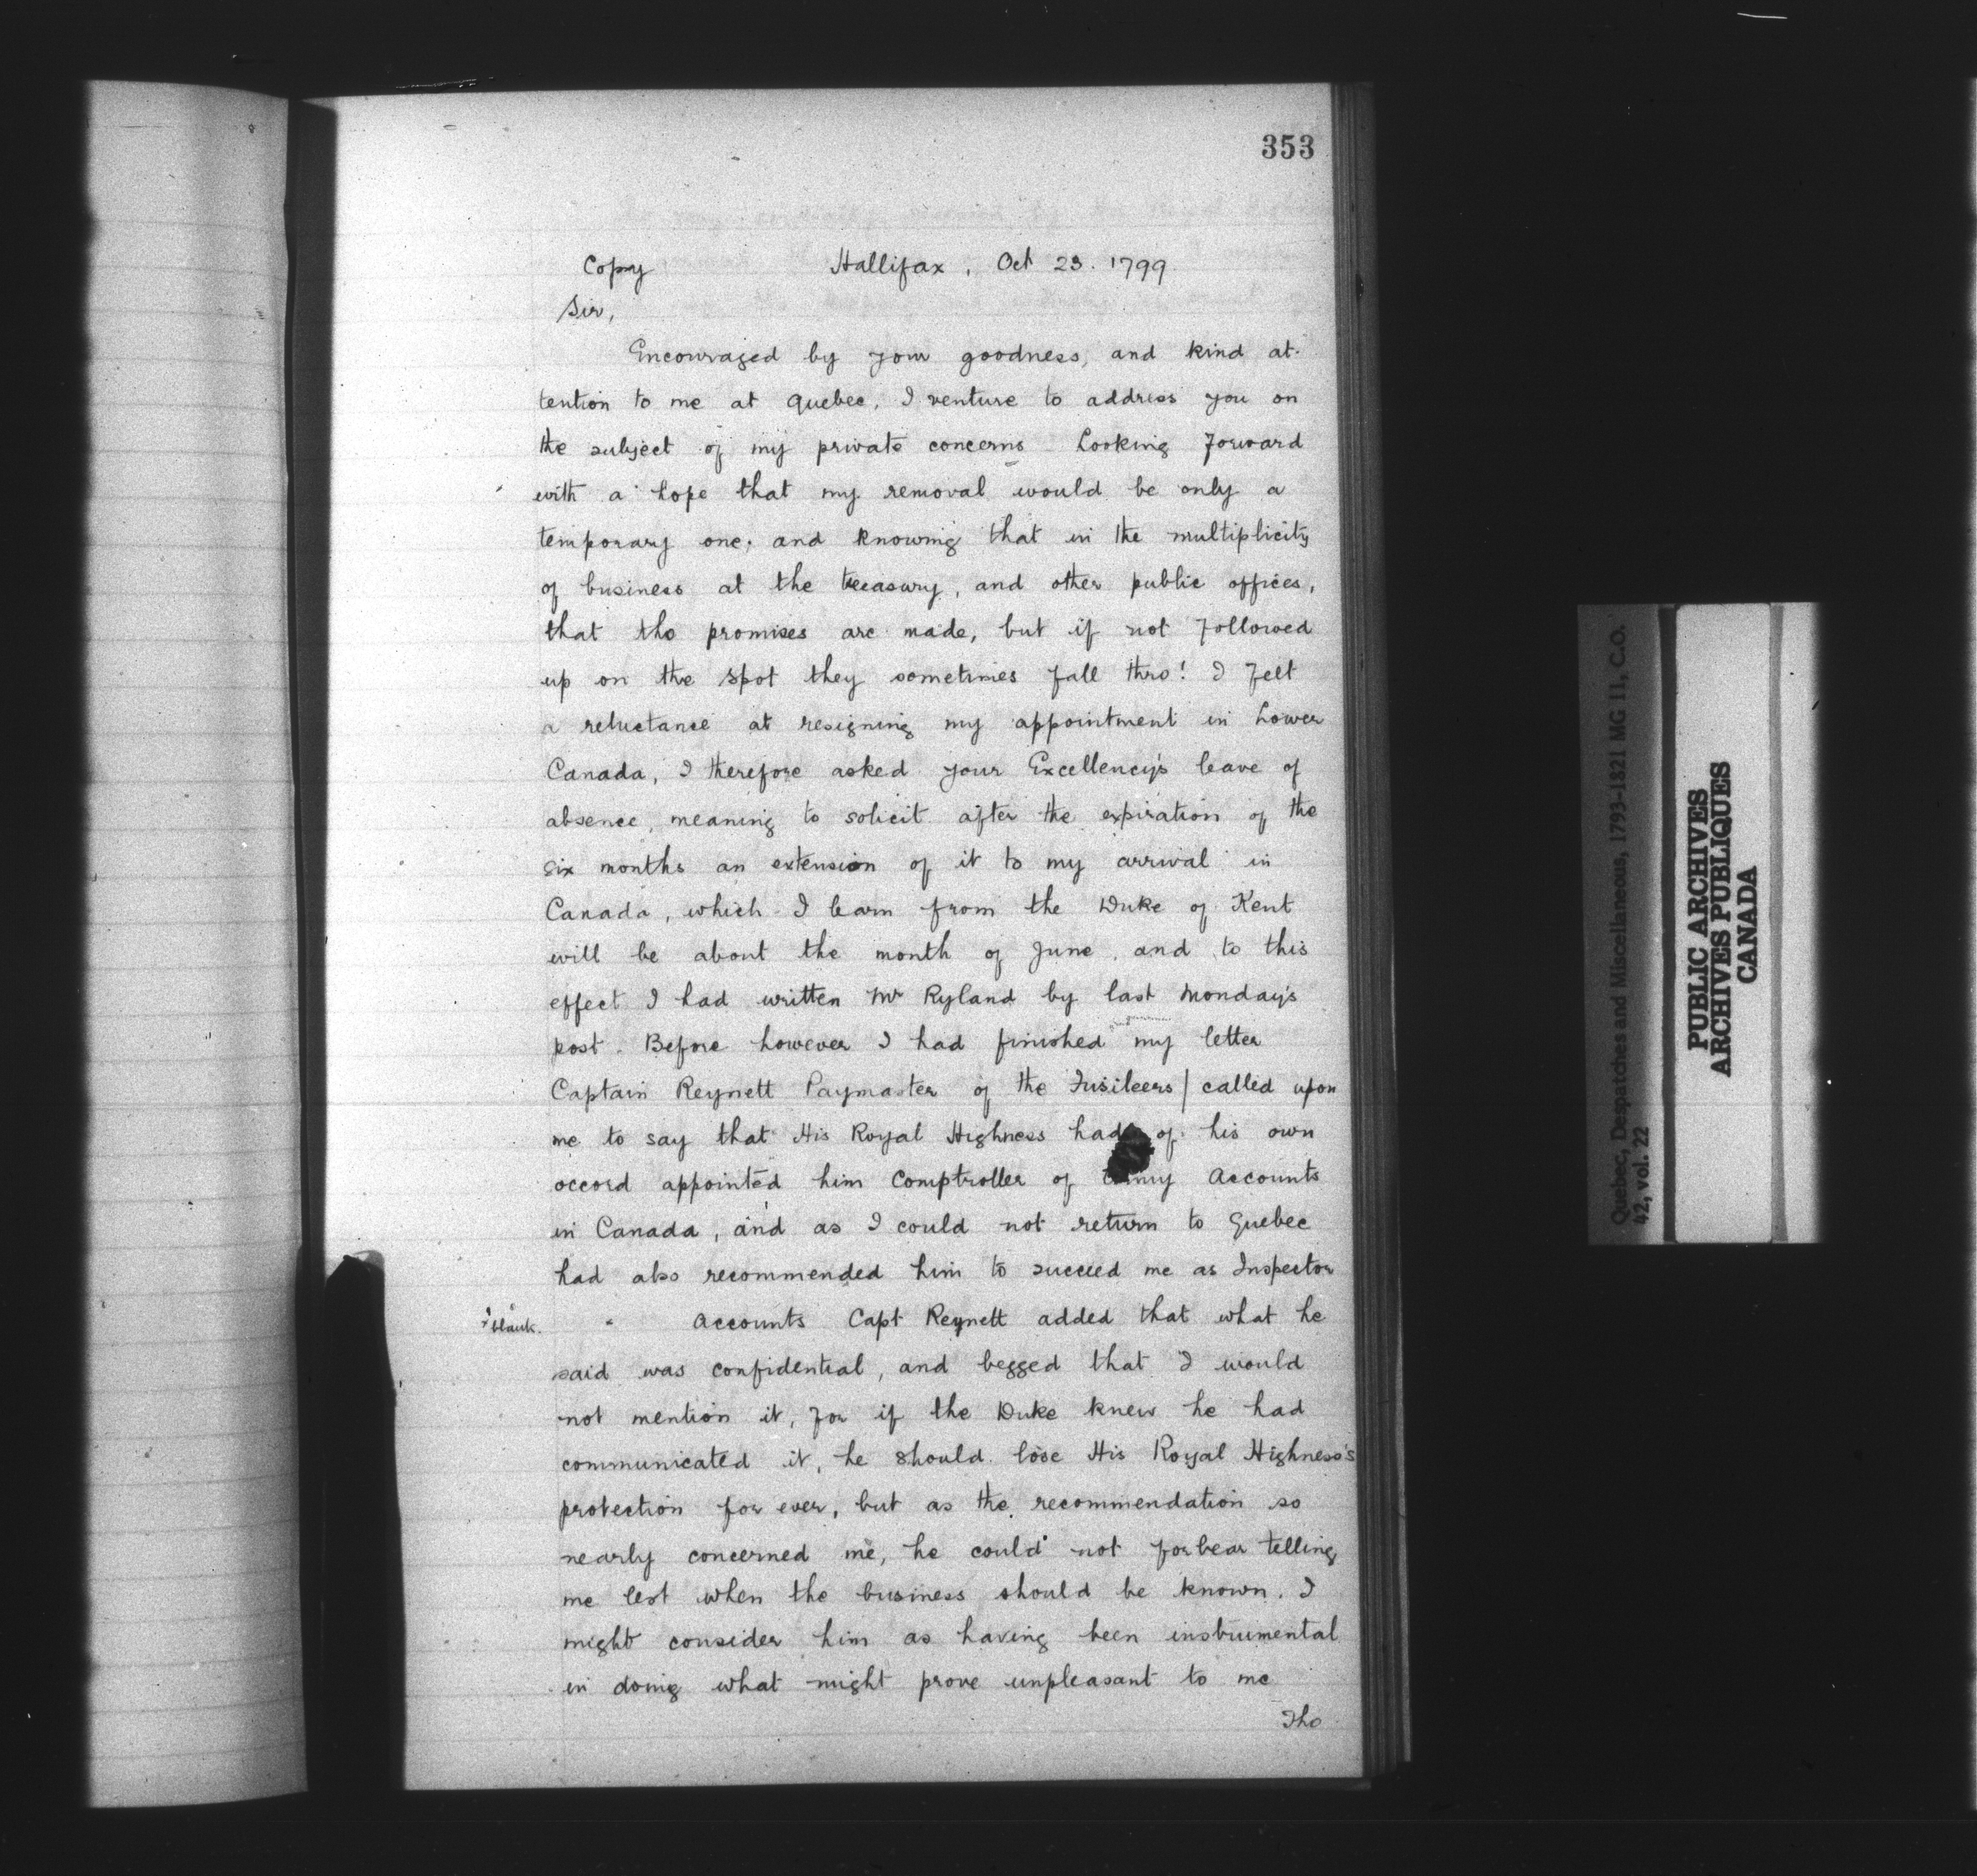 353
Copy Hallifax, Oct 23. 1799.
Sir,
Encouraged by your goodness, and kind at-
tention to me at Quebec, I venture to address you on
the subject of my private concerns Looking forward
with a hope that my removal would be only a
temporary one, and knowing that in the multiplicity
of business at the treasury, and other public offices,
that tho promises are made, but if not followed
up on the spot they sometimes fall thro! I felt
a reluctance at resigning my appointment in Lower
Canada, I therefore asked your Excellency's leave of
absence, meaning to solicit after the expiration of the
six months an extension of it to my arrival in
Canada, which I learn from the Duke of Kent
will be about the month of June, and to this
effect I had written Mr Ryland by last Monday's
post. Before however I had finished my letter
Captain Reynett Paymaster of the Fusileers/ called upon
me to say that His Royal Highness had of his own
accord appointed him Comptroller of Army Accounts
in Canada, and as I could not return to Quebec
had also recommended him to succeed me as Inspector
blank. " Accounts Capt Reynett added that what he
said was confidential, and begged that I would
not mention it, for if the Duke knew he had
communicated it, he should lose His Royal Highness's
protection for ever, but as the recommendation so
nearly concerned me, he could not forbear telling
me lest when the business should be known. I
might consider him as having been instrumental
in doing what might prove unpleasant to me
Tho
Quebec, Despatches and Miscellaneous, 1793-1821 MG 11, C.O.
42, vol. 22
PUBLIC ARCHIVES
ARCHIVES PUBLIQUES
CANADA